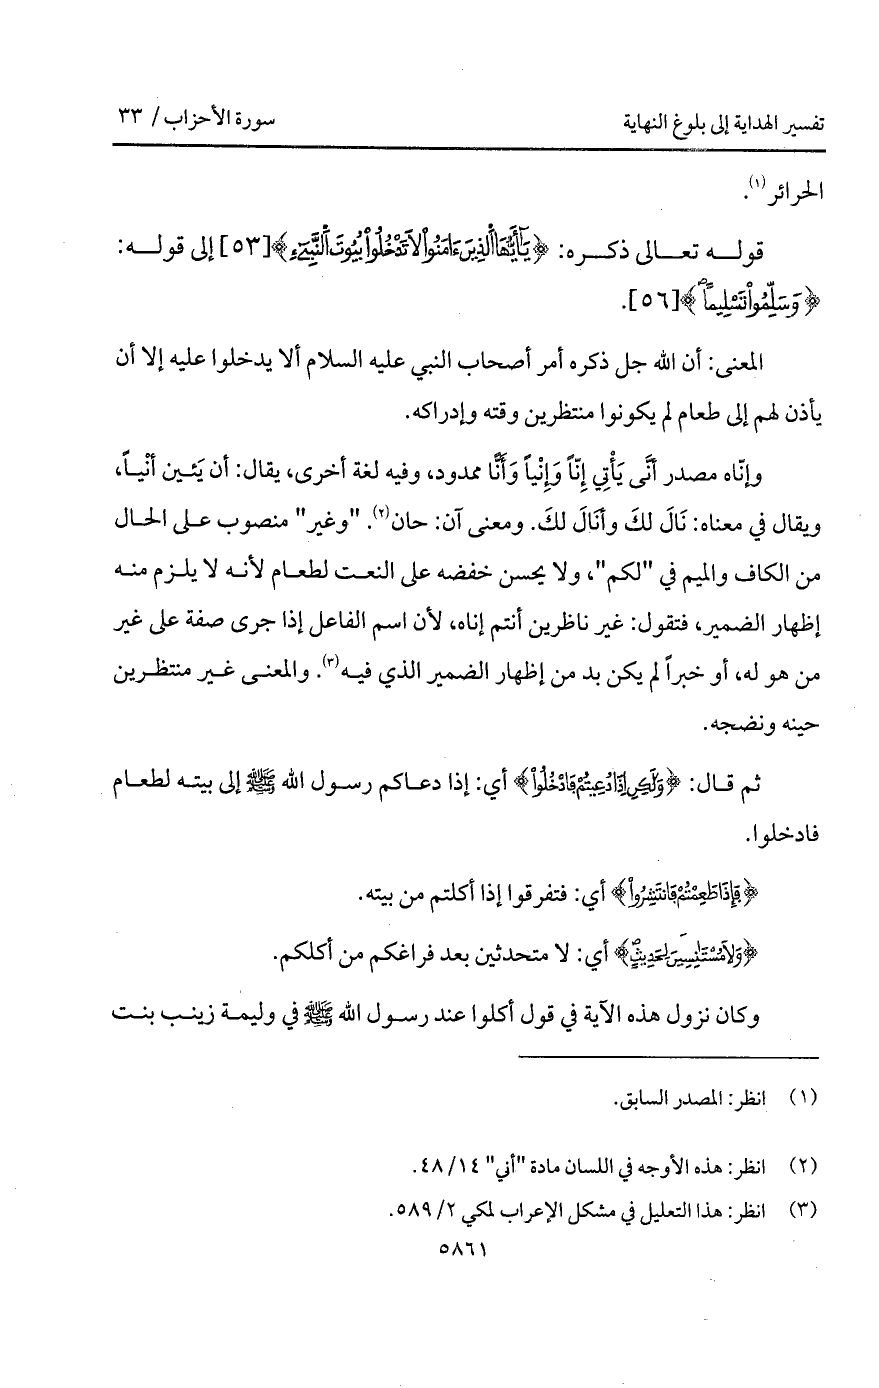 تفسير الهداية إلى بلوغ النهاية
سورة الأحزاب / ٣٣
الحرائر(١).
قولـه تعـالى ذكـره: ﴿يَٰٓأَيُّهَا اَ۬لذِينَ ءَامَنُواْ لَا تَدْخُلُواْ بُيُوتَ اَ۬لنَّبِےٓءِ﴾[٥٣] إلى قولـه:
﴿وَسَلِّمُواْ تَسْلِيماًۖ﴾[٥٦].
المعنى: أن الله جل ذكره أمر أصحاب النبي عليه السلام ألا يدخلوا عليه إلا أن
يأذن لهم إلى طعام لم يكونوا منتظرين وقته وإدراكه.
وإنّاه مصدر أَنَّى يَأْتِي إِنّاً وَإِنْياً وَأَنًّا ممدود، وفيه لغة أخرى، يقال: أن يَئـين أنْيـاً،
ويقال في معناه: نَالَ لكَ وأَنَالَ لكَ. ومعنى آن: حان(٢). "وغير" منصوب على الحال
من الكاف والميم في "لكم"، ولا يحسن خفضه على النعت لطعام لأنـه لا يلـزم منـه
إظهار الضمير، فتقول: غير ناظرين أنتم إناه، لأن اسم الفاعل إذا جرى صفة على غير
من هو له، أو خبراً لم يكن بد من إظهار الضمير الذي فيـه(٣). والمعنـى غـير منتظـرين
حينه ونضجه.
ثم قـال: ﴿وَلَٰكِنِ اِذَا دُعِيتُمْ فَادْخُلُواْ﴾ أي: إذا دعـاكم رسـول الله ﷺ إلى بيتـه لطعـام
فادخلوا.
﴿فَإِذَا طَعِمْتُمْ فَانتَشِرُواْ﴾ أي: فتفرقوا إذا أكلتم من بيته.
﴿وَلَا مُسْتَٰنِسِينَ لِحَدِيثٍۖ﴾ أي: لا متحدثين بعد فراغكم من أكلكم.
وكان نزول هذه الآية في قول أكلوا عند رسـول الله ﷺ في وليمـة زينـب بنـت
(١) انظر: المصدر السابق.
(٢) انظر: هذه الأوجه في اللسان مادة "أني" ١٤/ ٤٨.
(٣) انظر: هذا التعليل في مشكل الإعراب لمكي ٢/ ٥٨٩.
٥٨٦١